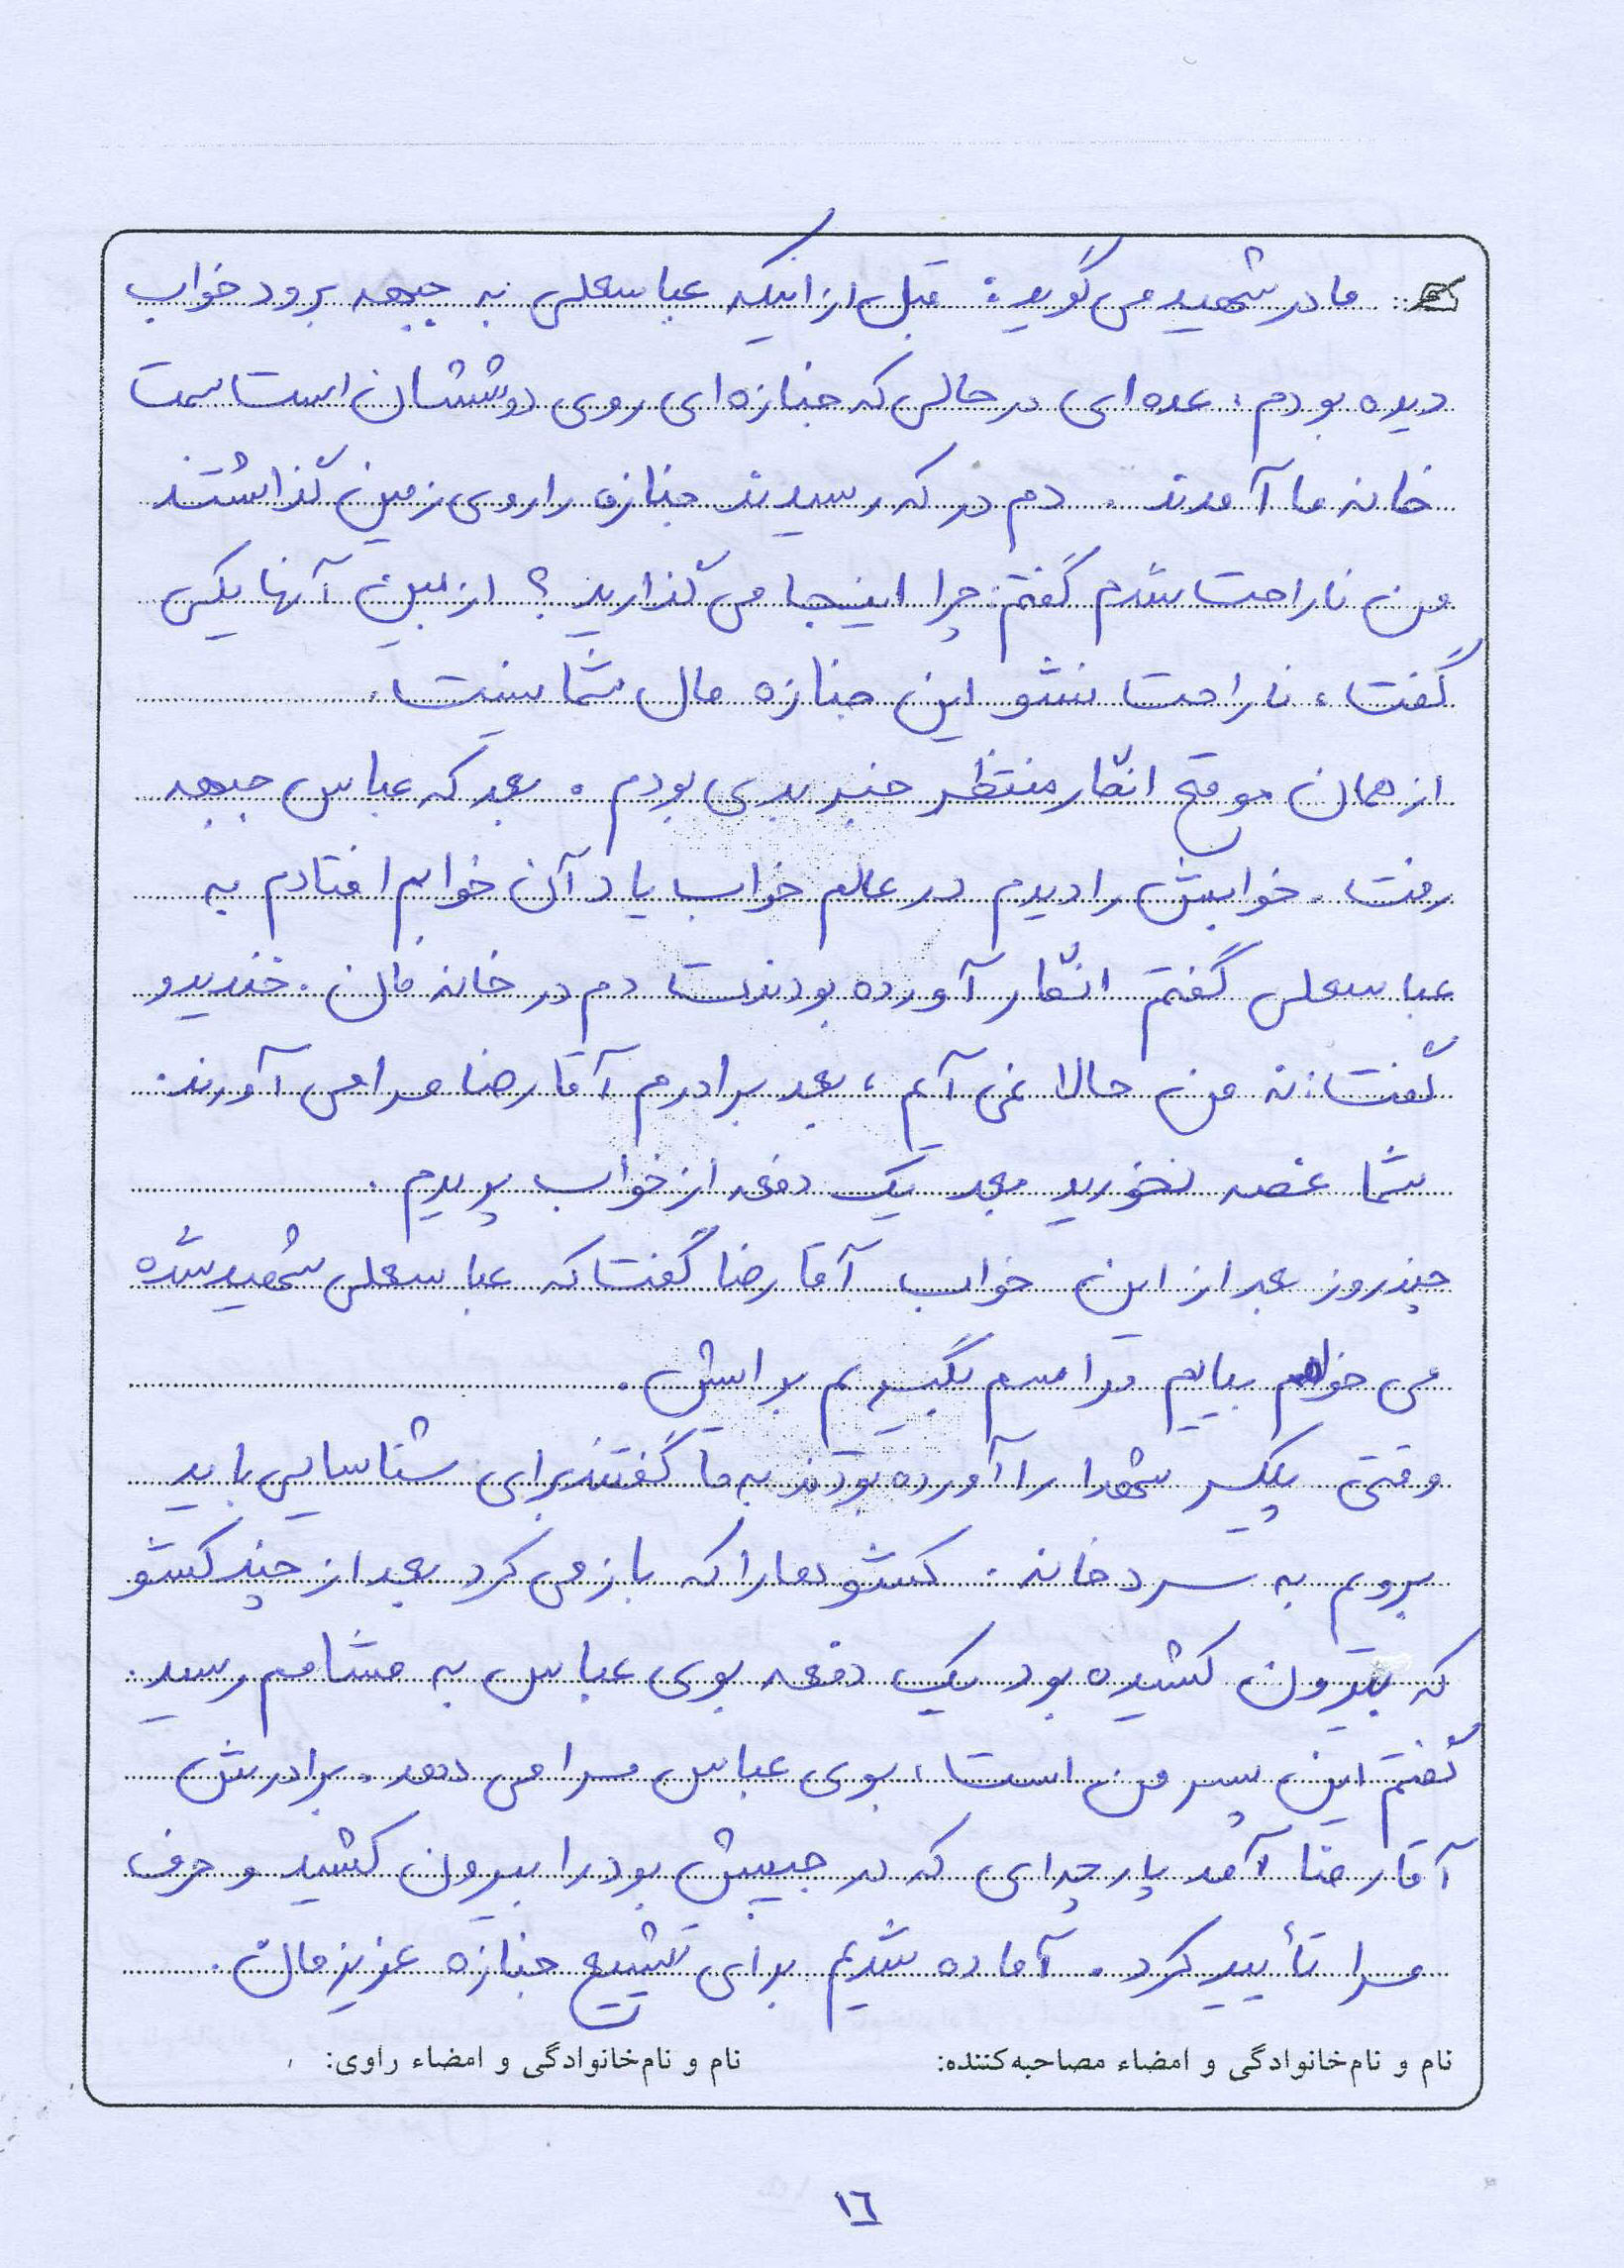 مادر شهید می گوید: قبل از اینکه عباسعلی به جبهه برود خواب
دیده بودم، عده ای در حالی که جنازه ای روی دوششان است سمت
خانه ما آمدند. دم در که رسیدند جنازه را روی زمین گذاشتند
من ناراحت شدم گفتم: چرا اینجا می گذارید؟ از بین آنها یکی
گفت، ناراحت نشو این جنازه مال شماست.
از همان موقع انگار منتظر خبر بدی بودم. بعد که عباس جبهه
رفت. خوابش را دیدم در عالم خواب یاد آن خوابم افتادم به
عباسعلی گفتم انگار آورده بودندت دم در خانه مان. خندید و
گفت: نه من حالا نمی آیم، بعد برادرم آقا رضا مرا می آورند.
شما غصه نخورید بعد یک دفعه از خواب پریدم.
چند روز بعد از این خواب آقا رضا گفت که عباسعلی شهید شده
می خواهم بیایم مراسم بگیریم برایش.
وقتی پیکر شهدا را آورده بودند به ما گفتند برای شناسایی باید
برویم به سردخانه. کشوها را که باز می کرد بعد از چند کشو
که بیرون کشیده بود یک دفعه بوی عباس به مشامم رسید.
گفتم این پسر من است، بوی عباس مرا می دهد. برادرش
آقا رضا آمد پارچه ای که در جیبش بود را بیرون کشید و حرف
مرا تأیید کرد. آماده شدیم برای تشییع جنازه عزیزمان.
نام و نام‌خانوادگی و امضاء مصاحبه‌کننده: نام و نام‌خانوادگی و امضاء راوی:
١٦